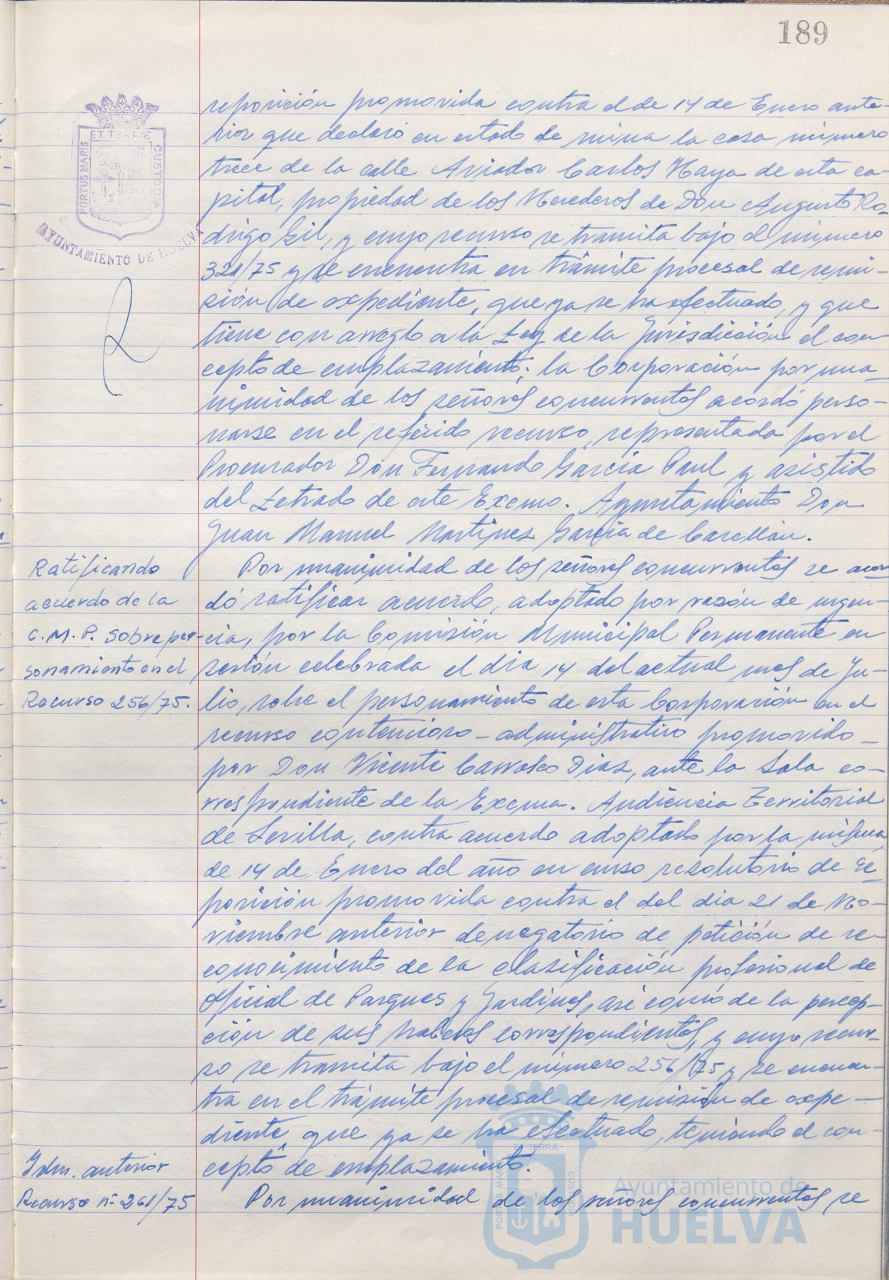 189
PORTUS MARIS ET TERRÆ CUSTODIA
AYUNTAMIENTO DE HUELVA
reposición promovida contra el de 14 de Enero ante-
rior que declaró en estado de ruina la casa número
trece de la calle Aviador Carlos Haya de esta ca-
pital, propiedad de los Herederos de Don Augusto Ro-
drigo Gil, y cuyo recurso se tramita bajo el número
321/75 y se encuentra en trámite procesal de remi-
sión de expediente, que ya se ha efectuado, y que
tiene con arreglo a la Ley de la Jurisdicción el con-
cepto de emplazamiento; la Corporación por una-
nimidad de los señores concurrentes acordó perso-
narse en el referido recurso, representada por el
Procurador Don Fernando García Paul y asistido
del Letrado de este Excmo. Ayuntamiento Don
Juan Manuel Martínez García de Casellan.
Ratificando
acuerdo de la
C.M.P. sobre per-
sonamiento en el
Recurso 256/75.
Por unanimidad de los señores concurrentes se acor
dó ratificar acuerdo, adoptado por razón de urgen-
cia, por la Comisión Municipal Permanente en
sesión celebrada el dia 14 del actual mes de Ju-
lio, sobre el personamiento de esta Corporación en el
recurso contencioso-administrativo promovido
por Don Vicente Carrasco Diaz, ante la Sala co-
rrespondiente de la Excma. Audiencia Territorial
de Sevilla, contra acuerdo adoptado por la misma,
de 14 de Enero del año en curso resolutorio de re-
posición promovida contra el del dia 21 de No-
viembre anterior denegatorio de petición de re-
conocimiento de la clasificación profesional de
Oficial de Parques y Jardines, así como de la percep-
ción de sus haberes correspondientes, y cuyo recur-
so se tramita bajo el número 256/75 y se encuen-
tra en el trámite procesal de remisión de expe-
diente, que ya se ha efectuado, teniendo el con-
cepto de emplazamiento.
Idm. anterior
Recurso nº 261/75
Por unanimidad de los señores concurrentes se
Ayuntamiento de
HUELVA